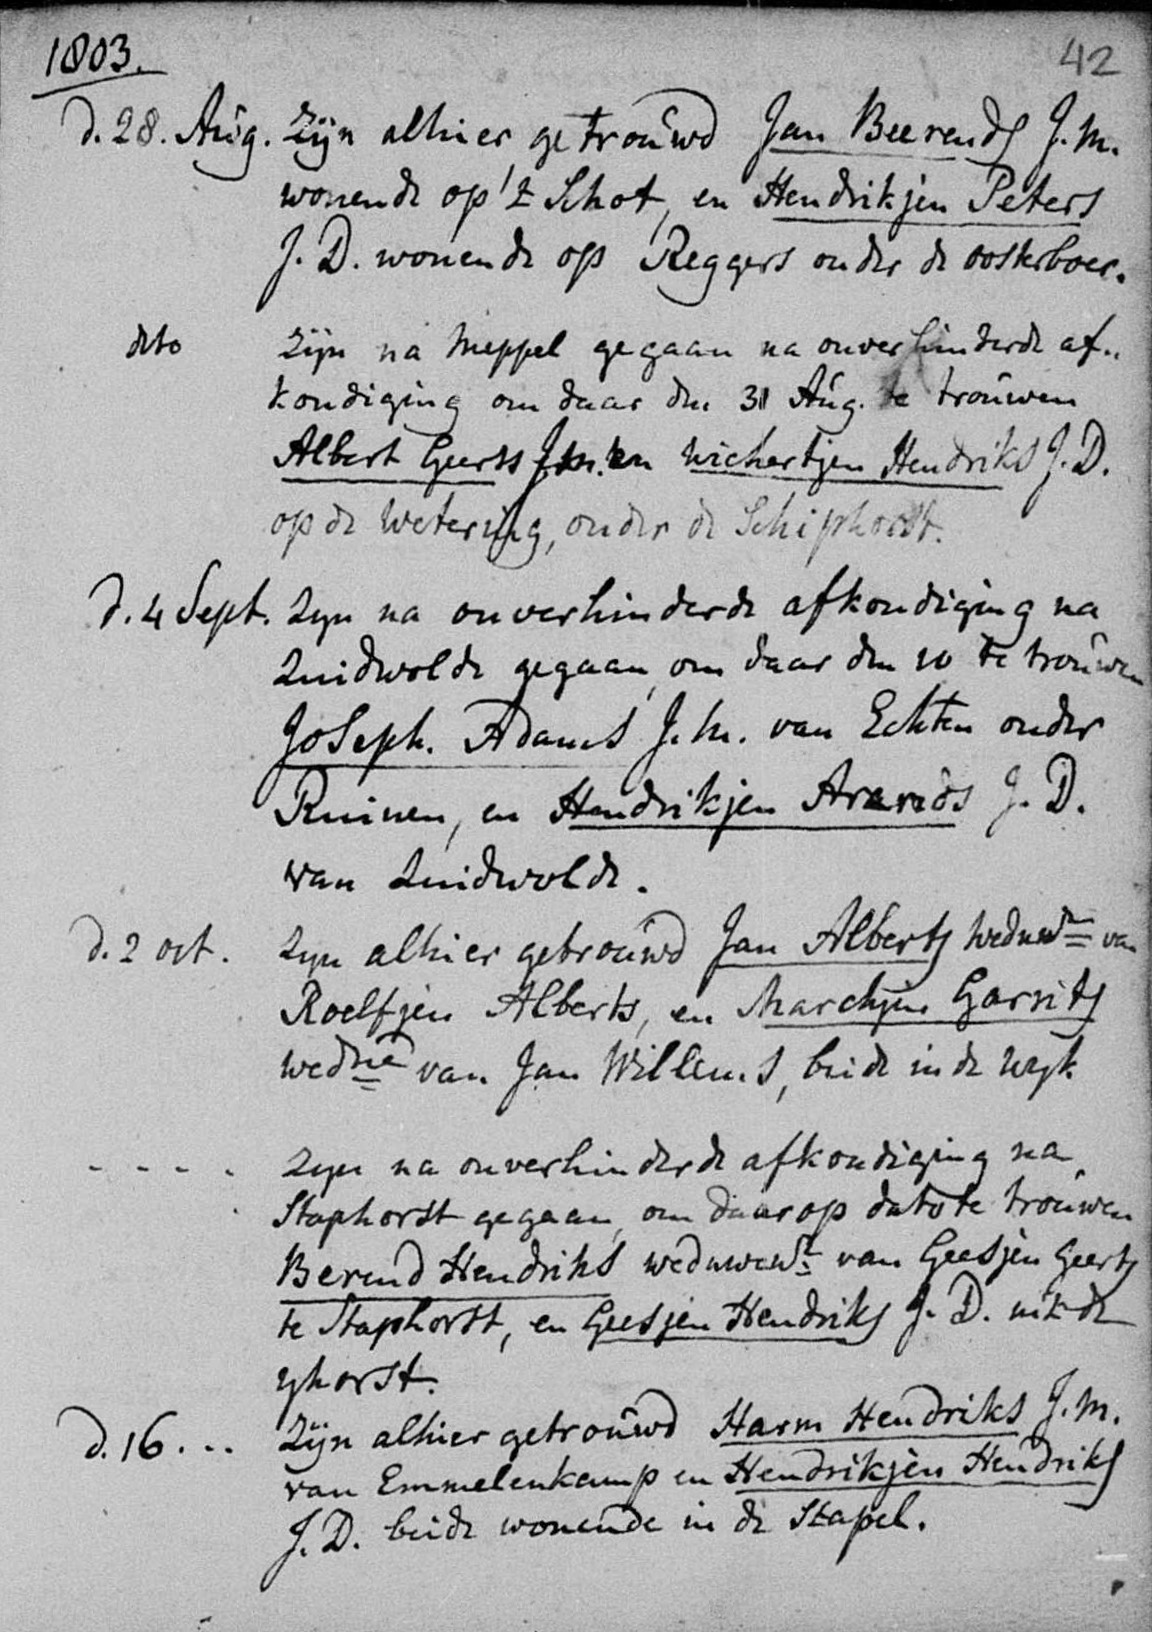 1803.
42
d. 28. Aug. Zijn alhier getrouwd Jan Beerends J. M.
wonende op 't Schot, en Hendrikjen Peters
J. D. wonende op Reggers onder de oosterboer.
dito Zijn na Meppel gegaan na onverhinderde af-
kondiging om daar den 31 Aug. te trouwen
Albert Geerts J. M. en Wichertjen Hendriks J. D.
op de Wetering, onder de Schiphorst.
d. 4 Sept. Zyn na onverhinderde afkondiging na
Zuidwolde gegaan, om daar den 10 te trouwen
Joseph. Adams J. M. van Echten onder
Ruinen, en Hendrikjen Arends J. D.
van Zuidwolde.
d. 2 oct. Zyn alhier getrouwd Jan Alberts weduwr van
Roelfjen Alberts, en Marchjen Garrits
wedne van Jan Willems, beide in de Wyk
- - - - Zyn na onverhinderde afkondiging na
Staphorst gegaan, om daar op dato te trouwen
Berend Hendriks weduwenr van Geesjen Geerts
te Staphorst, en Geesjen Hendriks J. D. uit de
yhorst.
d. 16 ... Zijn alhier getrouwd Harm Hendriks J. M.
van Emmelenkamp en Hendrikjen Hendriks
J. D. beide wonende in de Stapel.